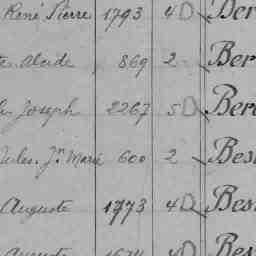 René Pierre 1793 4 D Ber
Alcide 869 2 Ber
Joseph 2267 5 D Ber
Jules, Jn Marie 600 2 Bes
Auguste 1773 4 D Bes
Auguste 4 D Bes